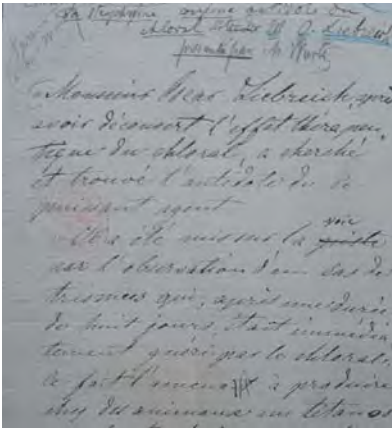 La Strychnine comme antidote du
chloral M. O. Liebreich
présentée par M. Wurtz
Monsieur Oscar Liebreich, après
avoir découvert l'effet thérapeu
tique du chloral, a cherché
et trouvé l'antidote de ce
puissant agent
Il a été mis sur la piste voie
par l'observation d'un cas de
trismus qui, après une durée
de huit jours, étant immédia
tement guéri par le chloral,
Ce fait l'amena à produire
chez des animaux un tétanos